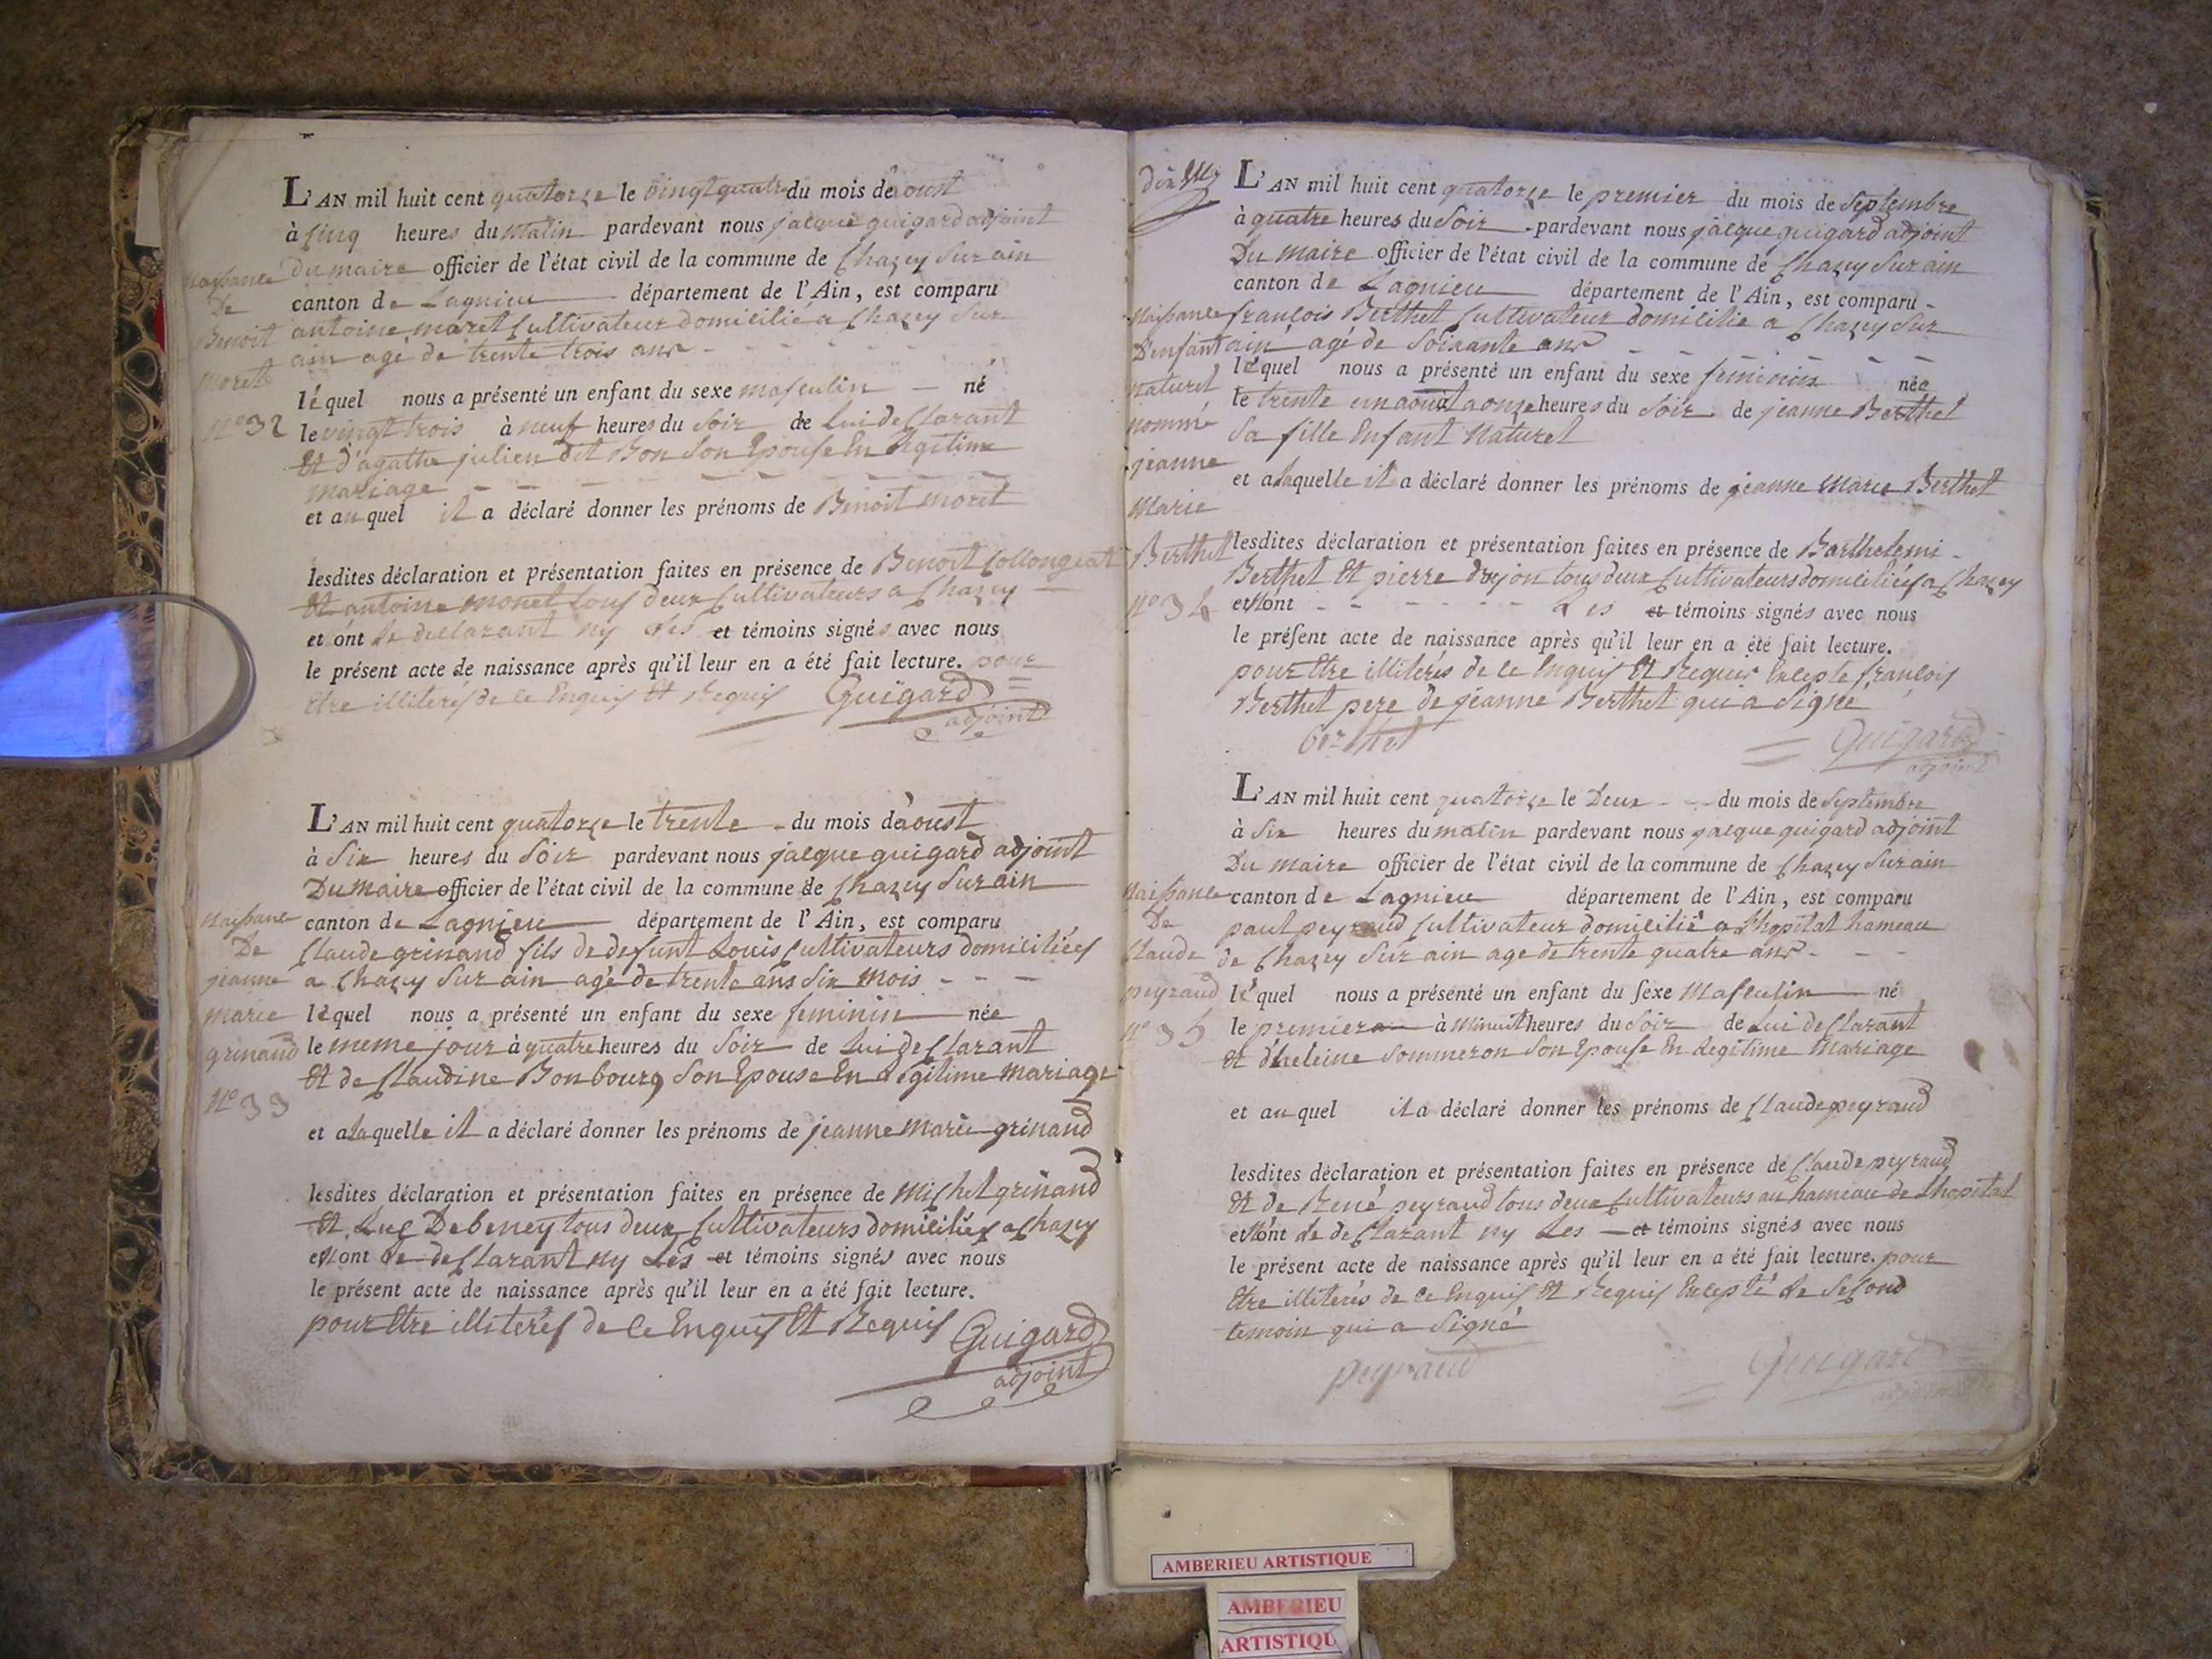 L'AN mil huit cent quatorze le vingt quatre du mois de aoust
à cinq heures du matin pardevant nous jacque guigard adjoint
du maire officier de l'état civil de la commune de Chazey Sur ain
canton de Lagnieu département de l'Ain, est comparu
antoine moret Cultivateur domicilié a Chazey Sur
ain agé de trente trois ans
léquel nous a présenté un enfant du sexe masculin né
le vingt trois à neuf heures du Soir de Lui declarant
Et d'agathe julien dit Bon Son Epouse En légitime
mariage
et auquel il a déclaré donner les prénoms de Benoit moret
lesdites déclaration et présentation faites en présence de Benoit Collongeat
Et antoine monet tous deux Cultivateurs a Chazey
et ont le declarant ny Les et témoins signés avec nous
le présent acte de naissance après qu'il leur en a été fait lecture. pour
Etre illiterés de ce Enquis Et Requis Guigard
adjoint
Naissance
De
Benoit
moret
N° 32
L'AN mil huit cent quatorze le trente du mois d'aoust
à Six heures du Soir pardevant nous jacque guigard adjoint
Du Maire officier de l'état civil de la commune de Chazey Sur ain
canton de Lagnieu département de l'Ain, est comparu
Claude grinand fils de defunt Louis Cultivateurs domiciliées
a Chazey Sur ain agé de trente ans Six mois
léquel nous a présenté un enfant du sexe feminin née
le meme jour à quatre heures du Soir de Lui declarant
Et de Claudine Bonbourg Son Epouse En Légitime mariage
et a laquelle il a déclaré donner les prénoms de jeanne Marie grinand
lesdites déclaration et présentation faites en présence de Michel grinand
Et Luc Debeney tous deux Cultivateurs domiciliés a Chazey
et ont Le declarant ny Les et témoins signés avec nous
le présent acte de naissance après qu'il leur en a été fait lecture.
pour Etre illiterés de ce Enquis Et Requis Guigard
adjoint
Naissance
De
jeanne
marie
grinand
N° 33
L'AN mil huit cent quatorze le premier du mois de Septembre
à quatre heures du Soir pardevant nous jacque guigard adjoint
Du Maire officier de l'état civil de la commune de Chazey Sur ain
canton de Lagnieu département de l'Ain, est comparu
françois Berthet Cultivateur domicilié a Chazey Sur
ain agé de Soixante ans
léquel nous a présenté un enfant du sexe feminin née
le trente un aoust a onze heures du Soir de jeanne Berthet
Sa fille Enfant Naturel
et a laquelle il a déclaré donner les prénoms de jeanne Marie Berthet
lesdites déclaration et présentation faites en présence de Barthelemi
Berthet Et pierre drojon tous deux Cultivateurs domiciliés a Chazey
et ont Les et témoins signés avec nous
le présent acte de naissance après qu'il leur en a été fait lecture.
pour Etre illiterés de ce Enquis Et Requis Excepte françois
Berthet pere de jeanne Berthet qui a Signé
berthet Guigard
adjoint
Naissance
D'enfant
naturel
nommé
jeanne
Marie
Berthet
N° 34
L'AN mil huit cent quatorze le Deux du mois de Septembre
à Six heures du matin pardevant nous jacque guigard adjoint
Du Maire officier de l'état civil de la commune de Chazey Sur ain
canton de Lagnieu département de l'Ain, est comparu
paul peyraud Cultivateur domicilié a Lhopital hameau
de Chazey Sur ain age de trente quatre ans
léquel nous a présenté un enfant du sexe Masculin né
le premier à Minuit heures du Soir de Lui declarant
Et d'heleine Sommeron Son Epouse En Legitime Mariage
et auquel il a déclaré donner les prénoms de Claude peyraud
lesdites déclaration et présentation faites en présence de Claude peyraud
Et de René peyraud tous deux Cultivateurs au hameau de Lhopital
et ont Le declarant ny Les et témoins signés avec nous
le présent acte de naissance après qu'il leur en a été fait lecture. pour
Etre illiterés de ce Enquis Et Requis Excepté Le Second
temoin qui a Signé
peyraud Guigard
adjoint
Naissance
De
Claude
peyraud
N° 35
AMBERIEU ARTISTIQUE
AMBERIEU
ARTISTIQU